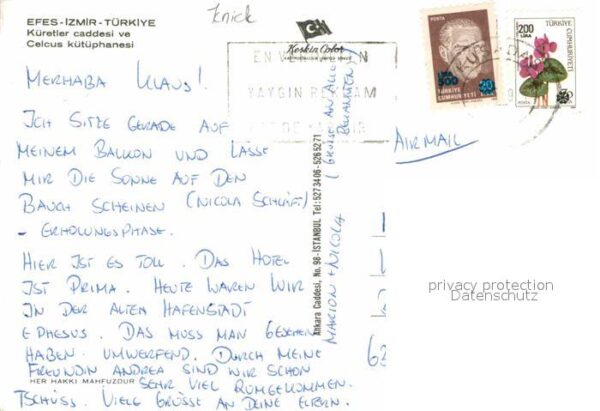 EFES-İZMİR-TÜRKİYE
Küretler caddesi ve
Celcus kütüphanesi
Knick
Keskin Color
AIRMAIL
MERHABA KLAUS!
ICH SITZE GERADE AUF
MEINEM BALKON UND LASSE
MIR DIE SONNE AUF DEN
BAUCH SCHEINEN (NICOLA SCHLÄFT)
- ERHOLUNGSPHASE.
HIER IST ES TOLL. DAS HOTEL
IST PRIMA. HEUTE WAREN WIR
IN DER ALTEN HAFENSTADT
EPHESUS. DAS MUSS MAN GESEHEN
HABEN. UMWERFEND. DURCH MEINE
FREUNDIN ANDREA SIND WIR SCHON
SEHR VIEL RUMGEKOMMEN.
TSCHÜSS. VIELE GRÜSSE AN DEINE ELTERN.
MARION + NICOLA
(GRÜSSE AN ALLE
BEKANNTEN)
HER HAKKI MAHFUZDUR
Ankara Caddesi, No. 98-İSTANBUL Tel: 5273406-5265271
EN YAYGIN REKLAM
POSTA
500
20
TÜRKİYE
CUMHURİYETİ
200
LIRA
TÜRKİYE
CUMHURİYETİ
POSTA
62
privacy protection
Datenschutz